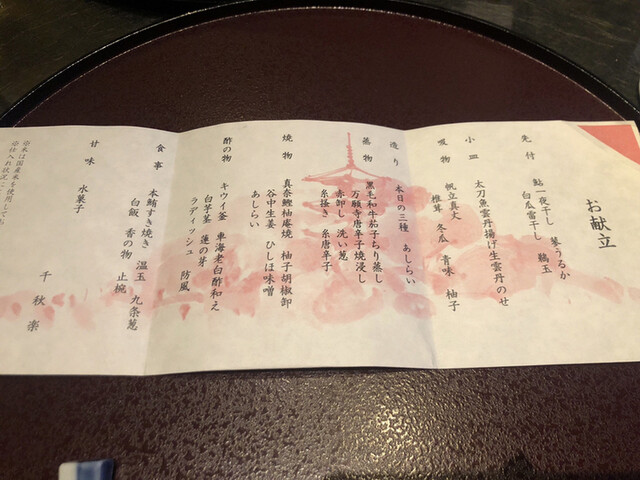 お献立
先付
鮎一夜干し 琴うるか
白瓜雷干し 鶉玉
小皿
太刀魚雲丹揚げ生雲丹のせ
吸物
帆立真丈 青味 柚子
椎茸 冬瓜
造り
本日の三種 あしらい
蒸物
黒毛和牛茄子ちり蒸し
万願寺唐辛子焼浸し
赤卸し 洗い葱
糸掻き 糸唐辛子
焼物
真奈鰹柚庵焼 柚子胡椒卸
谷中生姜 ひしほ味噌
あしらい
酢の物
キウイ釜 車海老白酢和え
白芋茎 蓮の芽 防風
ラディッシュ
食事
本鮪すき焼き 温玉 九条葱
白飯 香の物 止椀
甘味
水菓子
千秋楽
御米は国産米を使用してお